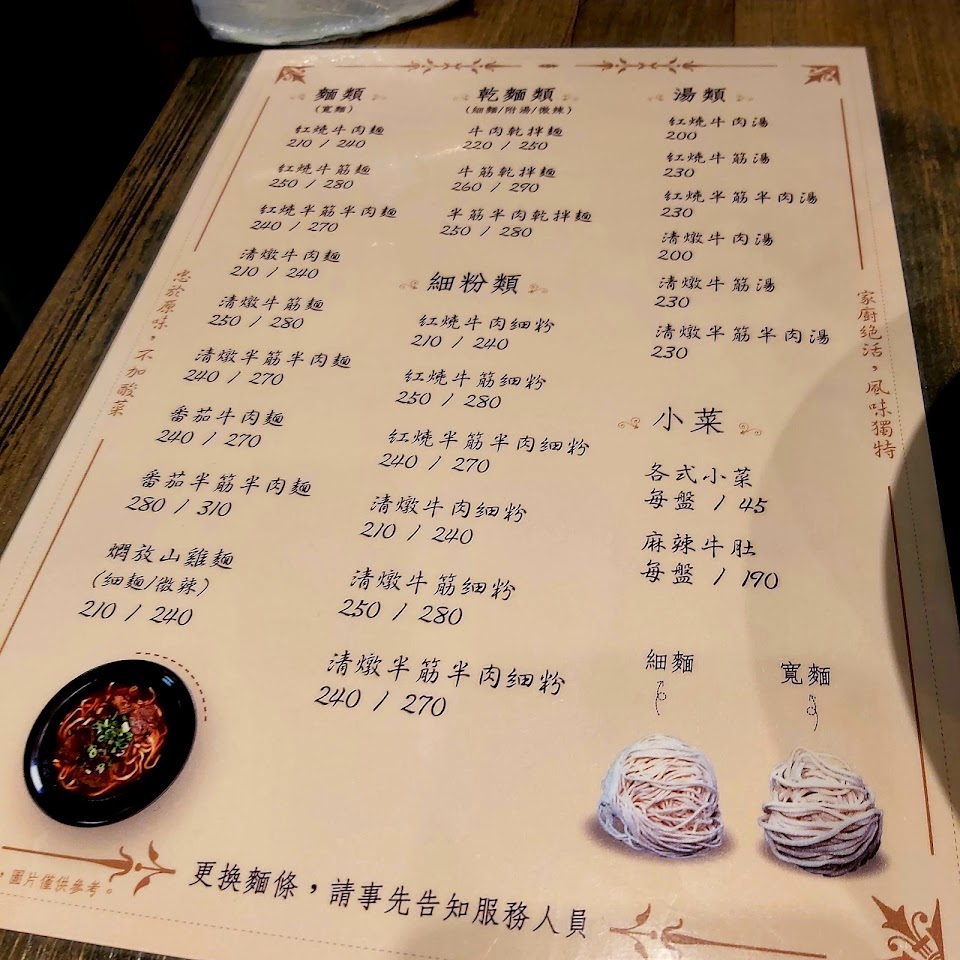 麵類
(寬麵)
紅燒牛肉麵
210 / 240
紅燒牛筋麵
250 / 280
紅燒半筋半肉麵
240 / 270
清燉牛肉麵
210 / 240
清燉牛筋麵
250 / 280
清燉半筋半肉麵
240 / 270
番茄牛肉麵
240 / 270
番茄半筋半肉麵
280 / 310
燜放山雞麵
(細麵/微辣)
210 / 240
乾麵類
(細麵/附湯/微辣)
牛肉乾拌麵
220 / 250
牛筋乾拌麵
260 / 290
半筋半肉乾拌麵
250 / 280
細粉類
紅燒牛肉細粉
210 / 240
紅燒牛筋細粉
250 / 280
紅燒半筋半肉細粉
240 / 270
清燉牛肉細粉
210 / 240
清燉牛筋細粉
250 / 280
清燉半筋半肉細粉
240 / 270
湯類
紅燒牛肉湯
200
紅燒牛筋湯
230
紅燒半筋半肉湯
230
清燉牛肉湯
200
清燉牛筋湯
230
清燉半筋半肉湯
230
小菜
各式小菜
每盤 / 45
麻辣牛肚
每盤 / 190
細麵
寬麵
忠於原味，不加酸菜
家廚絕活，風味獨特
更換麵條，請事先告知服務人員
，圖片僅供參考。